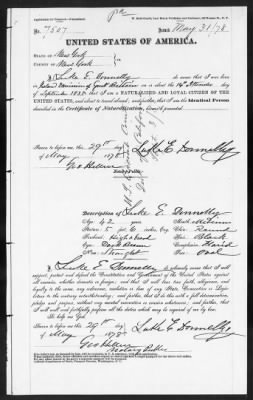 No. 7507
Issued May 31/78
UNITED STATES OF AMERICA.
STATE OF New York
COUNTY OF New York
I Luke E. Donnelly do swear that I was born
in Ireland Dominion of Great Britain on or about the 14th day
of September 1835; that I am a NATURALIZED AND LOYAL CITIZEN OF THE
UNITED STATES, and about to travel abroad; and further, that I am the Identical Person
described in the Certificate of Naturalization,
Sworn to before me, this 29th day
of May 1878
Luke E. Donnelly
Geo
Notary Public
Description of Luke E. Donnelly
Age: 42 years
Mouth: Medium
Stature: 5 feet 6 inches, Eng.
Chin: Round
Forehead: High & broad
Hair: Black
Eyes: Dark Brown
Complexion: Florid
Nose: Straight
Face: Oval
I, Luke E. Donnelly do solemnly swear that I will
support, protect and defend the Constitution and Government of the United States against
all enemies, whether domestic or foreign; and that I will bear true faith, allegiance, and
loyalty to the same, any ordinance, resolution or law of any State, Convention or Legis-
lature to the contrary notwithstanding; and further, that I do this with a full determination,
pledge and purpose, without any mental reservation or evasion whatsoever; and further, that
I will well and faithfully perform all the duties which may be required of me by law.
So help me God.
Sworn to before me this 29th day
of May 1878
Luke E. Donnelly
Geo
Notary Public